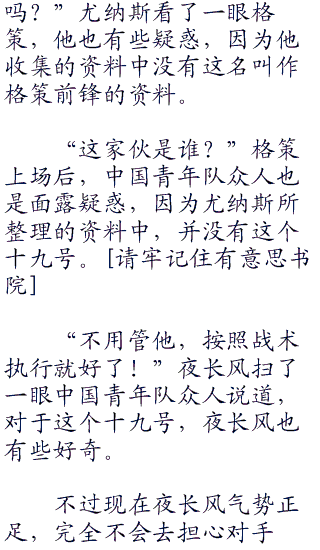 吗？”尤纳斯看了一眼格
策，他也有些疑惑，因为他
收集的资料中没有这名叫作
格策前锋的资料。
“这家伙是谁？”格策
上场后，中国青年队众人也
是面露疑惑，因为尤纳斯所
整理的资料中，并没有这个
十九号。[请牢记住有意思书
院]
“不用管他，按照战术
执行就好了！”夜长风扫了
一眼中国青年队众人说道，
对于这个十九号，夜长风也
有些好奇。
不过现在夜长风气势正
足，完全不会去担心对手